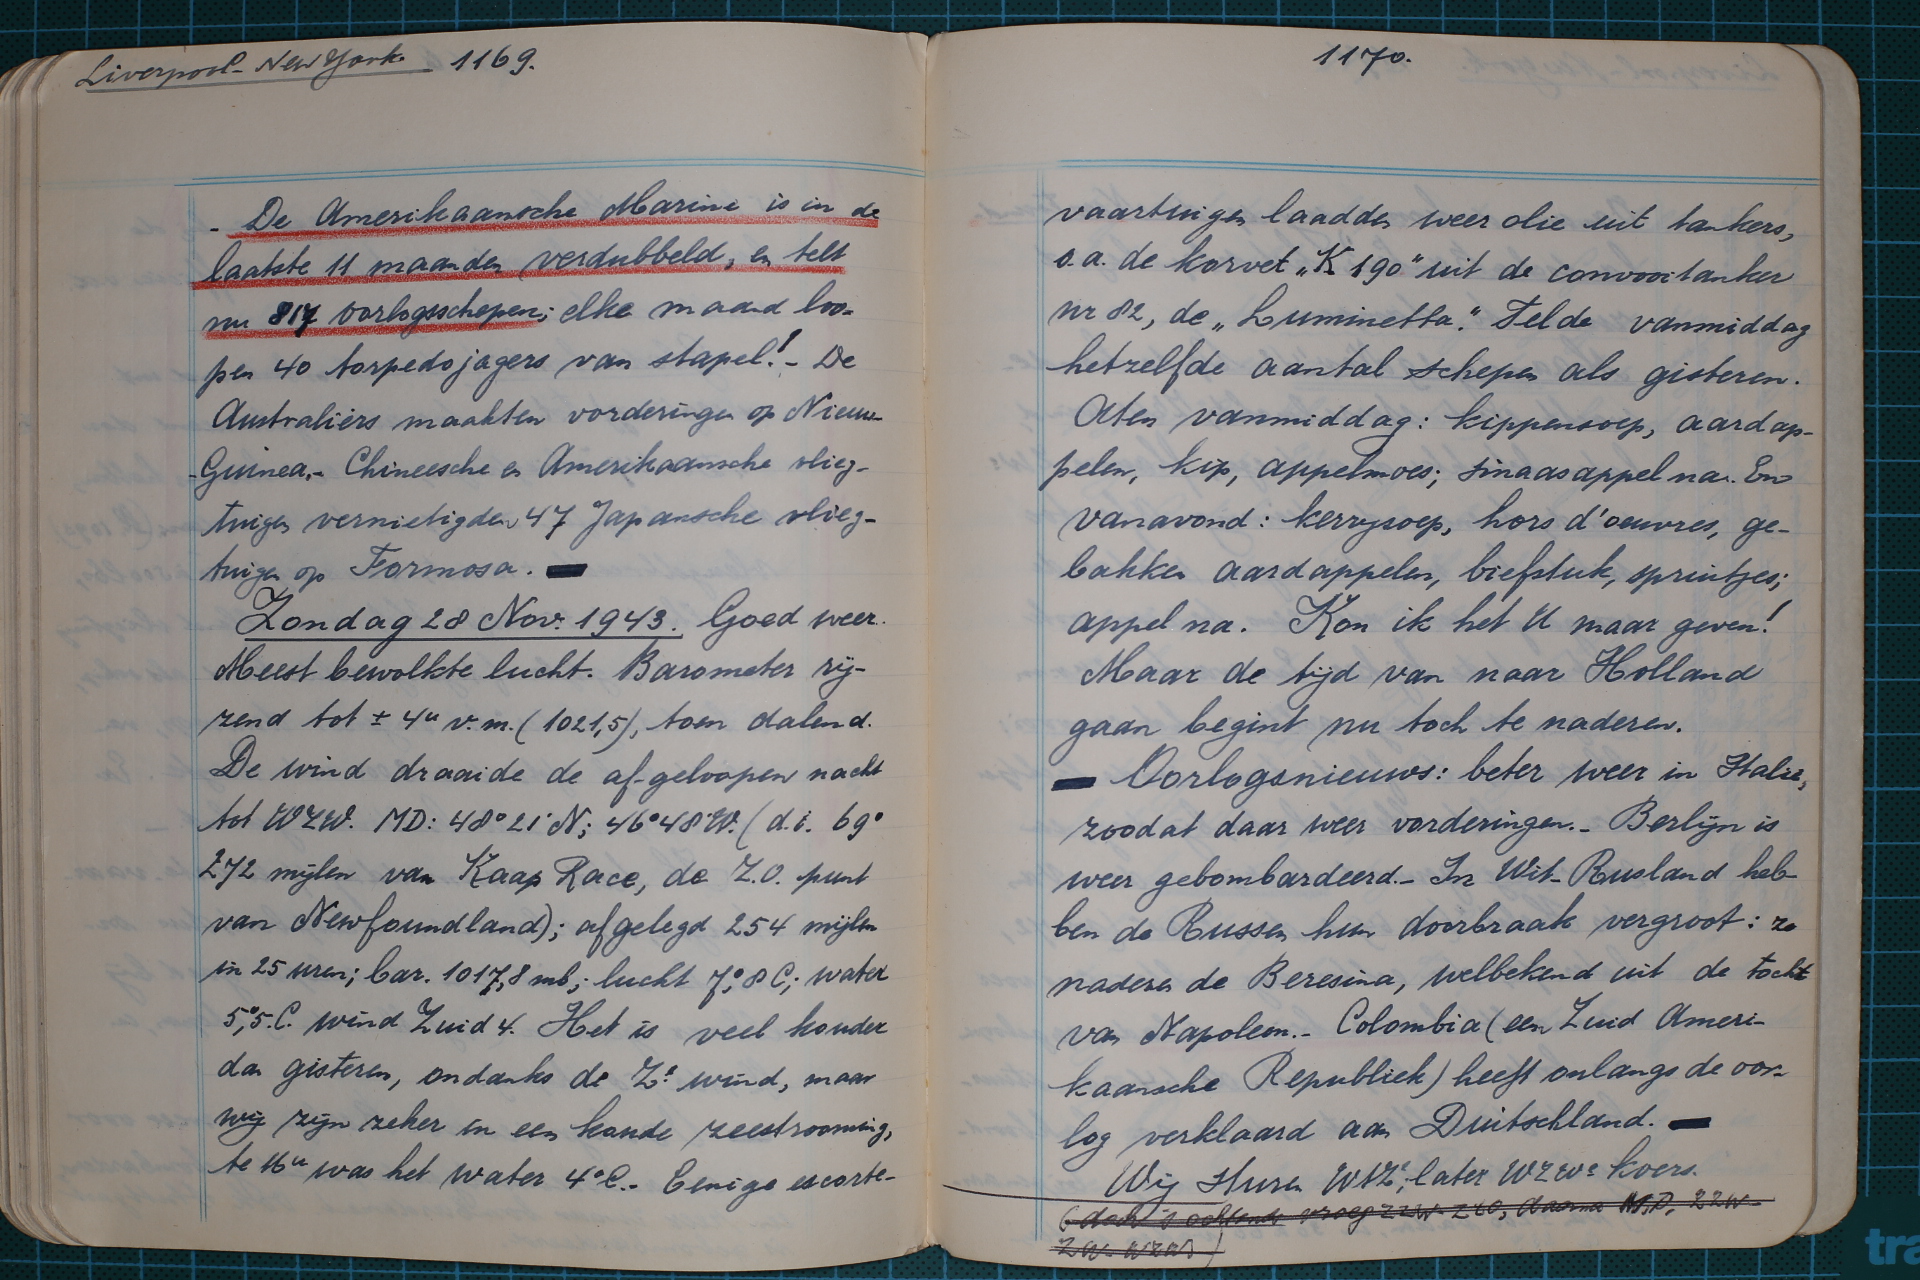 Liverpool - New York. 1169.
- De Amerikaansche Marine is in de
laatste 11 maanden verdubbeld, en telt
nu 817 oorlogsschepen; elke maand loo-
pen 40 torpedojagers van stapel! - De
Australiërs maakten vorderingen op Nieuw-
-Guinea. - Chineesche en Amerikaansche vlieg-
tuigen vernietigden 47 Japansche vlieg-
tuigen op Formosa. —
Zondag 28 Nov. 1943. Goed weer.
Meest bewolkte lucht. Barometer rij-
zend tot ± 4u v.m. (1021,5), toen dalend.
De wind draaide de af-geloopen nacht
tot WZW. MD: 48°21' N; 46°48' W. (d.i. 69°
272 mijlen van Kaap Race, de Z.O. punt
van Newfoundland); afgelegd 254 mijlen
in 25 uren; bar. 1017,8 mb; lucht 7°,8 C; water
5°,5 C. wind Zuid 4. Het is veel kouder
dan gisteren, ondanks de Ze wind, maar
wij zijn zeker in een koude zeestrooming,
te 16u was het water 4°C. - Eenige escorte-
1170.
vaartuigen laadden weer olie uit tankers,
o.a. de korvet „K 190" uit de convooitanker
nr 82, de „Luminetta." Telde vanmiddag
hetzelfde aantal schepen als gisteren.
Aten vanmiddag: kippensoep, aardap-
pelen, kip, appelmoes; sinaasappel na. En
vanavond: kerrysoep, hors d'oeuvres, ge-
bakken aardappelen, biefstuk, spruitjes;
appel na. Kon ik het U maar geven!
Maar de tijd van naar Holland
gaan begint nu toch te naderen.
— Oorlogsnieuws: beter weer in Italië,
zoodat daar weer vorderingen. - Berlijn is
weer gebombardeerd. - In Wit-Rusland heb-
ben de Russen hun doorbraak vergroot: ze
naderen de Beresina, welbekend uit de tocht
van Napoleon. - Colombia (een Zuid Ameri-
kaansche Republiek) heeft onlangs de oor-
log verklaard aan Duitschland. —
Wij sturen WtZ', later WZWe koers.
vroeg ZZW-ZZO, daarna M.D. ZZW-